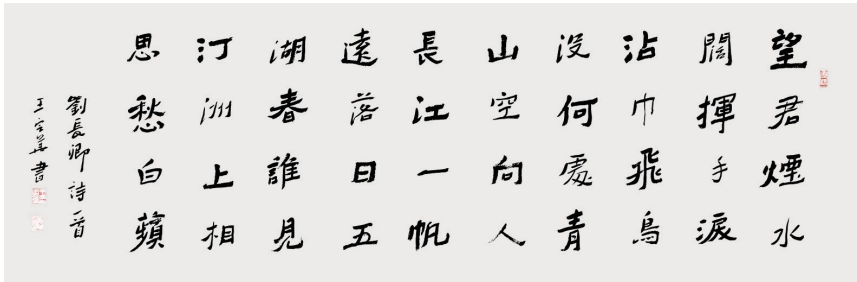 望君煙水
闊揮手淚
沾巾飛鳥
没何處青
山空向人
長江一帆
遠落日五
湖春誰見
汀洲上相
思愁白蘋
劉長卿詩一首
王書